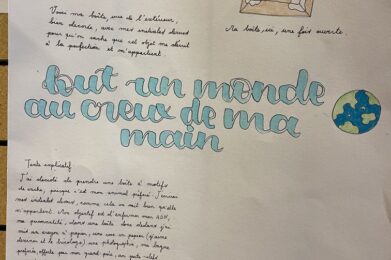 Voici ma boîte, vue de l'extérieur,
bien décorée, avec mes initiales dessus
pour qu'on sache que cet objet me décrit
à la perfection et m'appartient.
Ma boîte, ici, une fois ouverte.
tout un monde
au creux de ma
main
Texte explicatif:
J'ai décidé de prendre une boîte à motifs
de vache, puisque c'est mon animal préféré. J'
mes initiales dessus, comme cela on sait bien qu'elle
m'appartient. Mon objectif est d'enfermer mon ADN,
ma personnalité, dans une boîte. Dedans j'ai
mis un crayon à papier, une en papier (j'aime
dessiner et le bricolage) une photographie, ma bague
préférée, offerte par mon grand-père, un porte-clefs